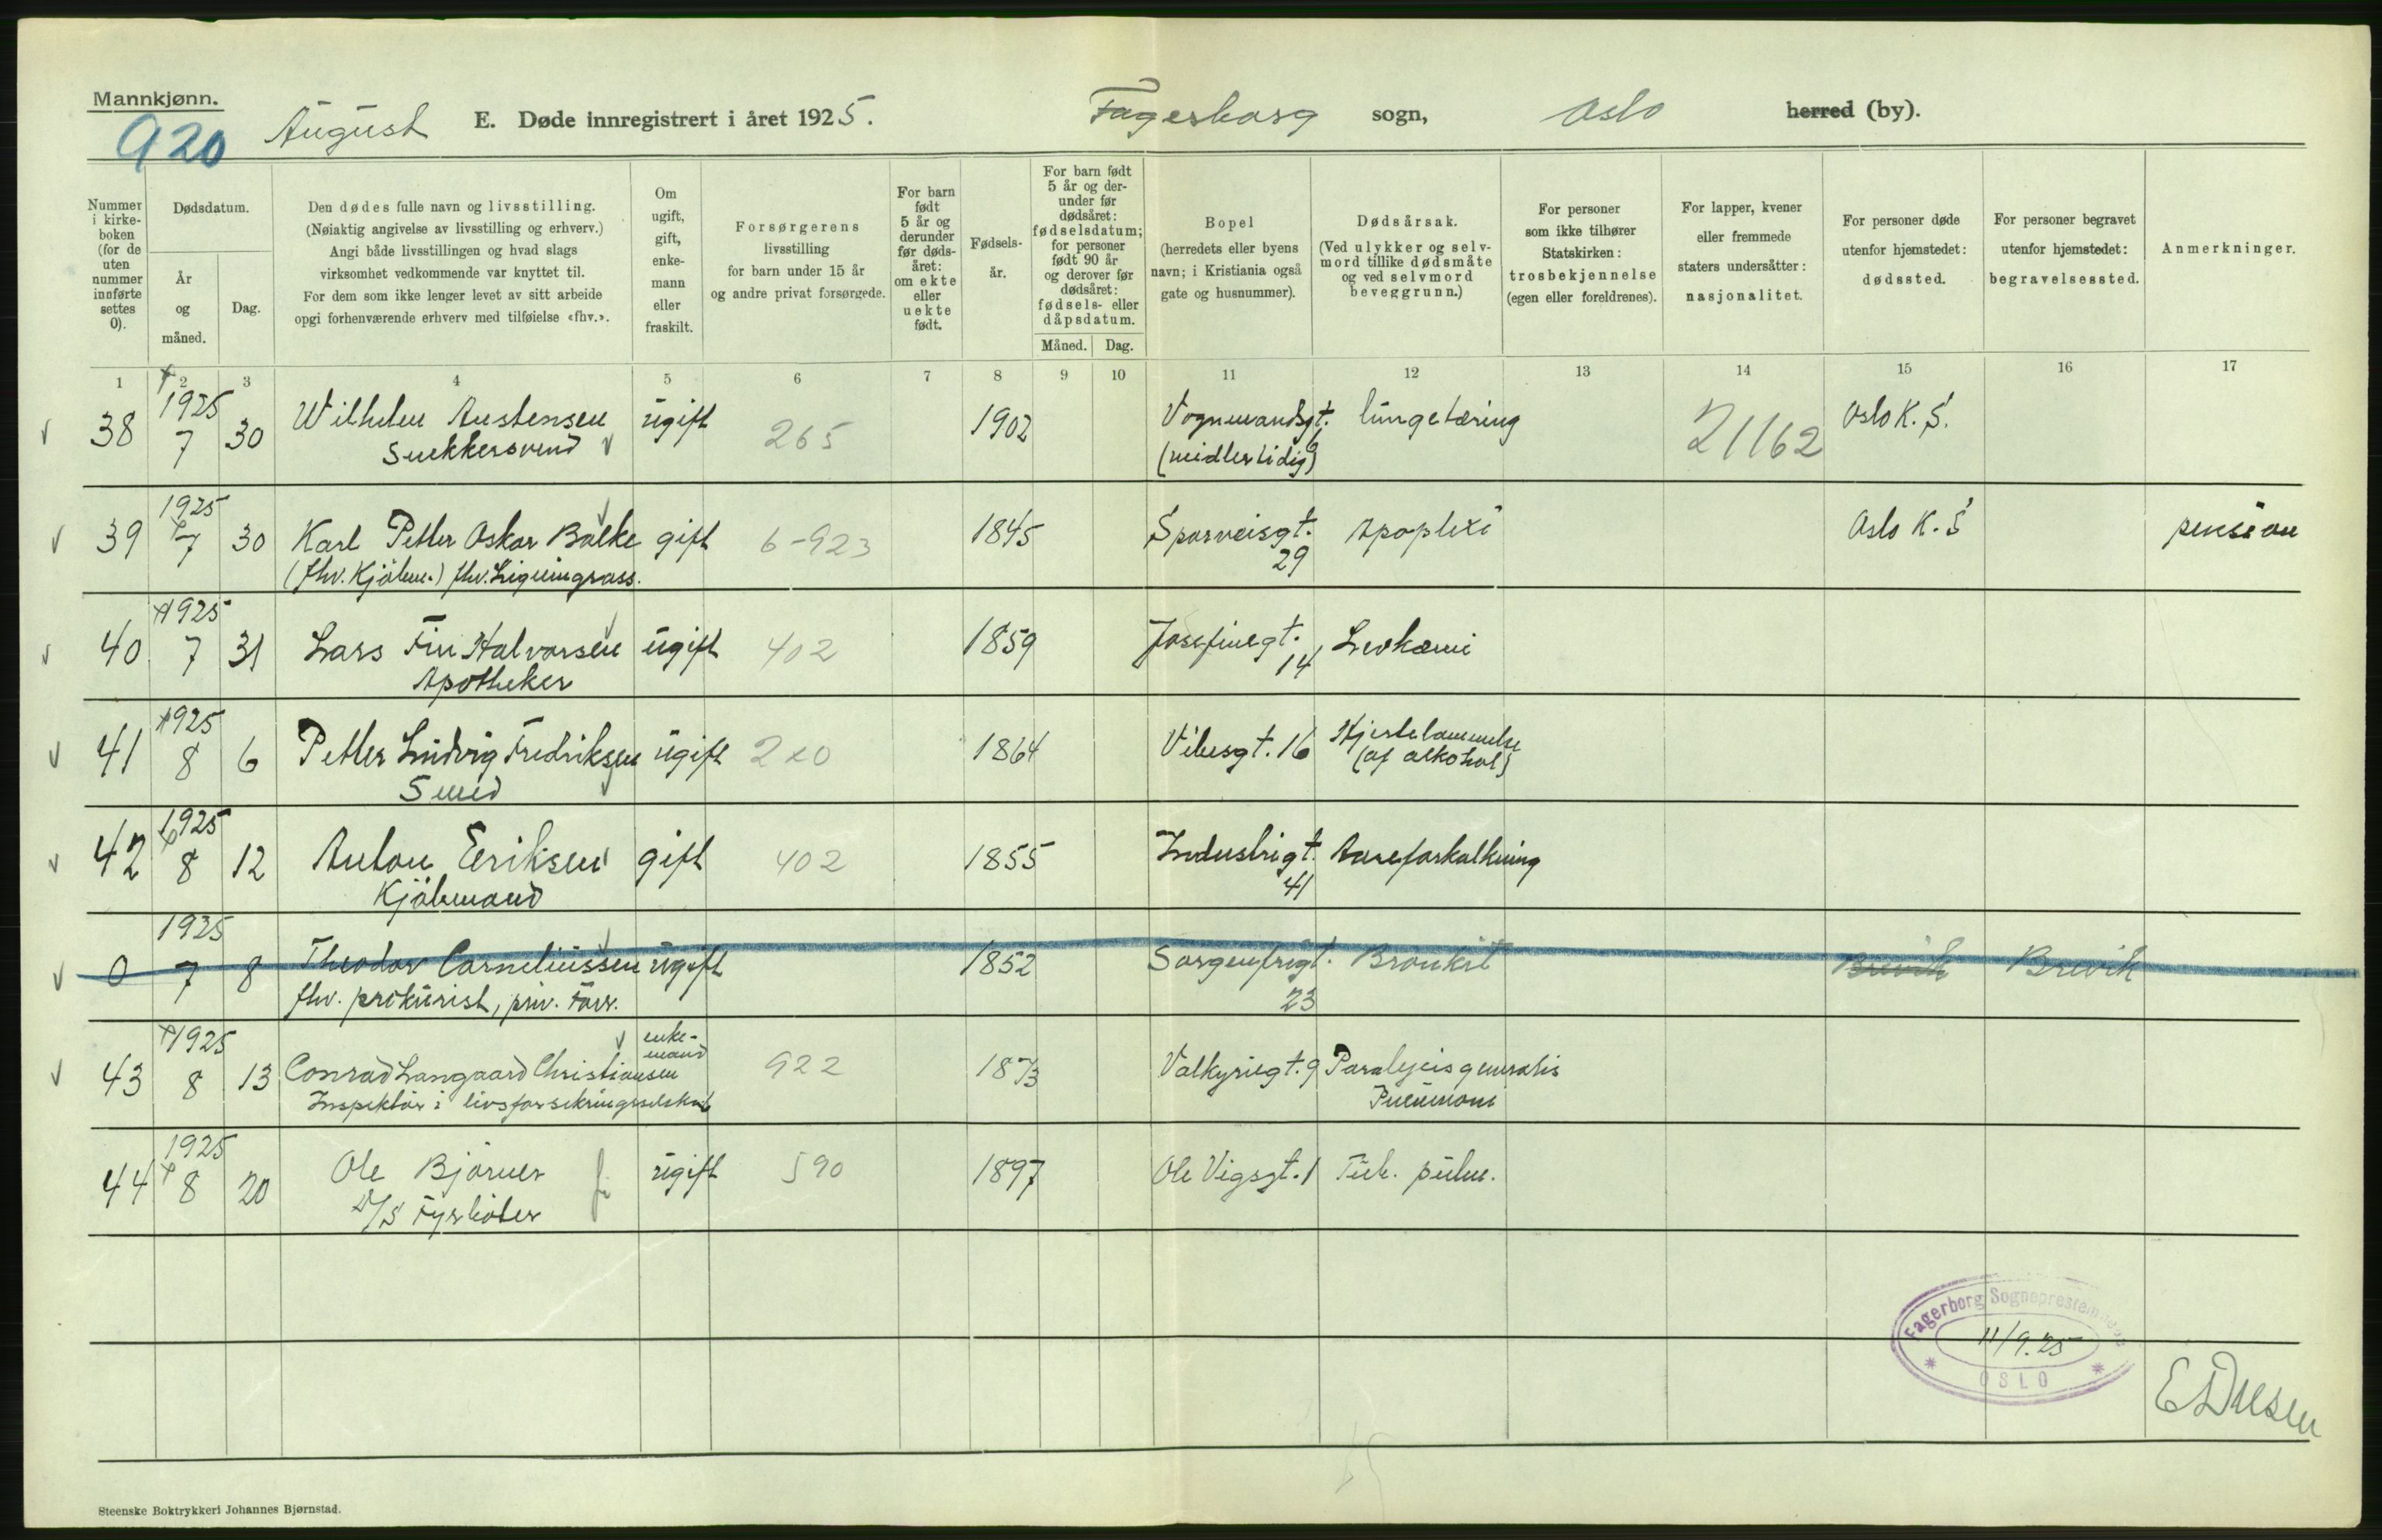 Mannkjønn.
920 August E. Døde innregistrert i året 1925. Fagerborg sogn, Oslo herred (by).
Nummer i kirke- boken (for de uten nummer innførte settes 0).
Dødsdatum.
År og måned.
Dag.
Den dødes fulle navn og livsstilling.
(Nøiaktig angivelse av livsstilling og erhverv.)
Angi både livsstillingen og hvad slags
virksomhet vedkommende var knyttet til.
For dem som ikke lenger levet av sitt arbeide
opgi forhenværende erhverv med tilføielse «fhv.».
Om ugift, gift, enke- mann eller fraskilt.
Forsørgerens
livsstilling
for barn under 15 år
og andre privat forsørgede.
For barn født 5 år og derunder før døds- året: om ekte eller uekte født.
Fødsels- år.
For barn født 5 år og der- under før dødsåret: fødselsdatum; for personer født 90 år og derover før dødsåret: fødsels- eller dåpsdatum.
Måned. Dag.
Bopel
(herredets eller byens
navn; i Kristiania også
gate og husnummer).
Dødsårsak.
(Ved ulykker og selv-
mord tillike dødsmåte
og ved selvmord
beveggrunn.)
For personer
som ikke tilhører
Statskirken:
trosbekjennelse
(egen eller foreldrenes).
For lapper, kvener
eller fremmede
staters undersåtter:
nasjonalitet.
For personer døde
utenfor hjemstedet:
dødssted.
For personer begravet
utenfor hjemstedet:
begravelsessted.
Anmerkninger.
1 2 3 4 5 6 7 8 9 10 11 12 13 14 15 16 17
38 1925 7 30 Wilhelm Austensen ugift 265 1902 Vognmandsgt. 6 lungetæring 21162 Oslo K. S.
Snekkersvend (midlertidig)
39 1925 7 30 Karl Petter Oskar Balke gift 6-923 1845 Sporveisgt. 29 Apoplexi Oslo K. S pension
(fhv. Kjöbm.) fhv. Ligningsass.
40 1925 7 31 Lars Fin Halvorsen ugift 402 1859 Josefinegt. 14 Levkæmi
Apotheker
41 1925 8 6 Petter Ludvig Fredriksen ugift 1864 Vibesgt. 16 Hjertelammelse
Smed (af alkohol)
42 1925 8 12 Anton Eriksen gift 402 1855 Industrigt. 41 Aareforkalkning
Kjöbmand
0 1925 7 8 Theodor Corneliussen ugift 1852 Sorgenfrigt. 23 Bronkit Brevik Brevik
fhv. prokurist, priv. Forr.
43 1925 8 13 Conrad Langaard Christiansen enke- mand 922 1873 Valkyriegt. 9 Paralysis generalis
Inspektör i livsforsikringsselskab Pneumoni
44 1925 8 20 Ole Bjorner ugift 590 1897 Ole Vigsgt. 1 Tub. pulm.
D/S Fyrböter
Fagerborg Sogneprestembede
11/9.25
OSLO
Steenske Boktrykkeri Johannes Bjørnstad.